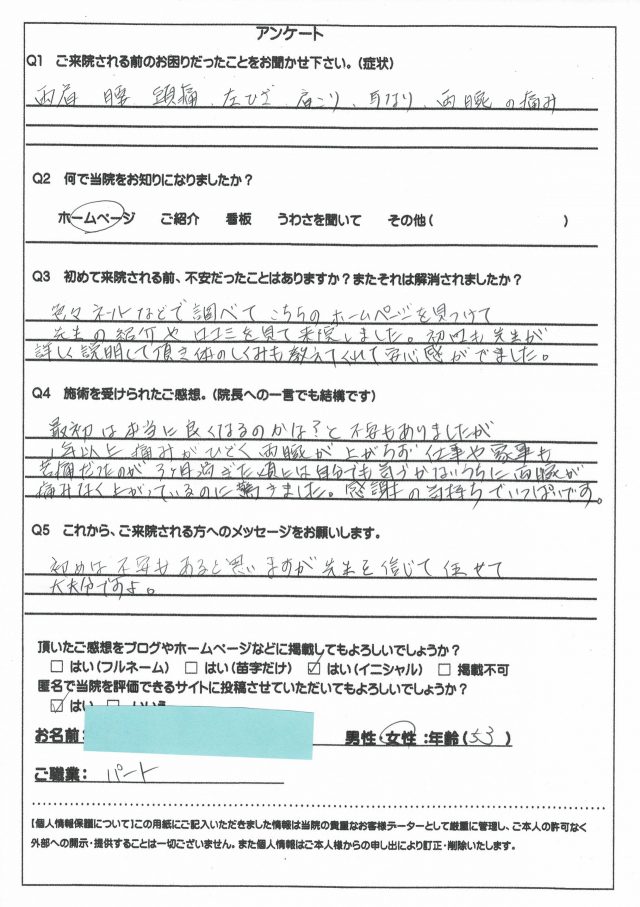 アンケート
Q1 ご来院される前のお困りだったことをお聞かせ下さい。(症状)
両肩 腰 頭痛、左ひざ、肩こり、耳なり、両腕の痛み
Q2 何で当院をお知りになりましたか？
ホームページ ご紹介 看板 うわさを聞いて その他( )
Q3 初めて来院される前、不安だったことはありますか？またそれは解消されましたか？
色々ネットなどで調べてこちらのホームページを見つけて
先生の紹介や口コミを見て来院しました。初回も先生が
詳しく説明して頂き体のしくみも教えてくれて安心感がでました。
Q4 施術を受けられたご感想。(院長への一言でも結構です)
最初は本当に良くなるのかな？と不安もありましたが
1年以上痛みがひどく両腕が上がらず仕事や家事も
苦痛だったのが3ヶ月過ぎた頃には自分でも気づかないうちに両腕が
痛みなく上がっているのに驚きました。感謝の気持ちでいっぱいです。
Q5 これから、ご来院される方へのメッセージをお願いします。
初めは不安もあると思いますが先生を信じて任せて
大丈夫ですよ。
頂いたご感想をブログやホームページなどに掲載してもよろしいでしょうか？
□ はい(フルネーム) □ はい(苗字だけ) ☑ はい(イニシャル) □ 掲載不可
匿名で当院を評価できるサイトに投稿させていただいてもよろしいでしょうか？
☑ はい
お名前: 男性・女性:年齢(53)
ご職業: パート
【個人情報保護について】この用紙にご記入いただきました情報は当院の貴重なお客様データーとして厳重に管理し、ご本人の許可なく
外部への開示・提供することは一切ございません。また個人情報はご本人様からの申し出により訂正・削除いたします。